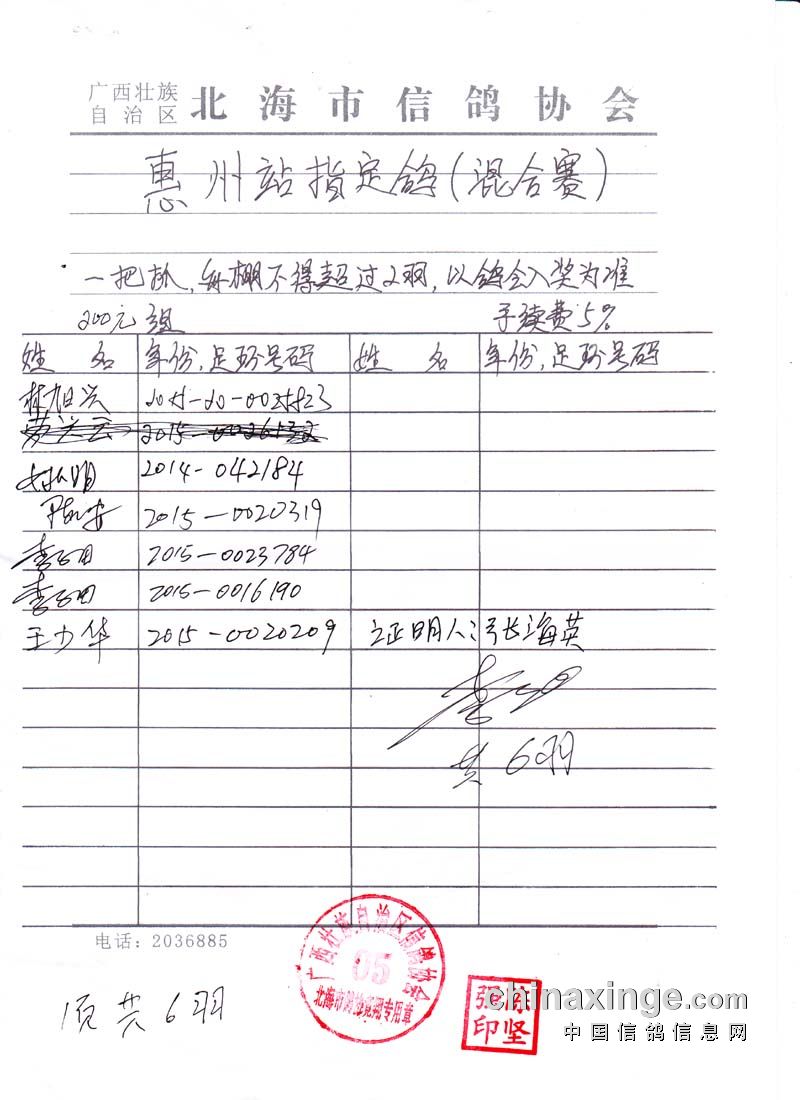 广西壮族
自治区 北海市信鸽协会
惠州站指定鸽(混合赛)
一把抓,每棚不得超过2羽,以鸽会入奖为准
200元组 手续费5%
姓名 年份,足环号码 姓名 年份,足环号码
林旭兴
2015-0026132
2014-042184
2015-0020319
2015-0023784
2015-0016190
王少华 2015-0020209 证明人:张海英
共6羽
电话:2036885
广西壮族自治区信鸽协会
05
北海市
专用章
共6羽
强坚
印
chinaxinge.com
中国信鸽信息网